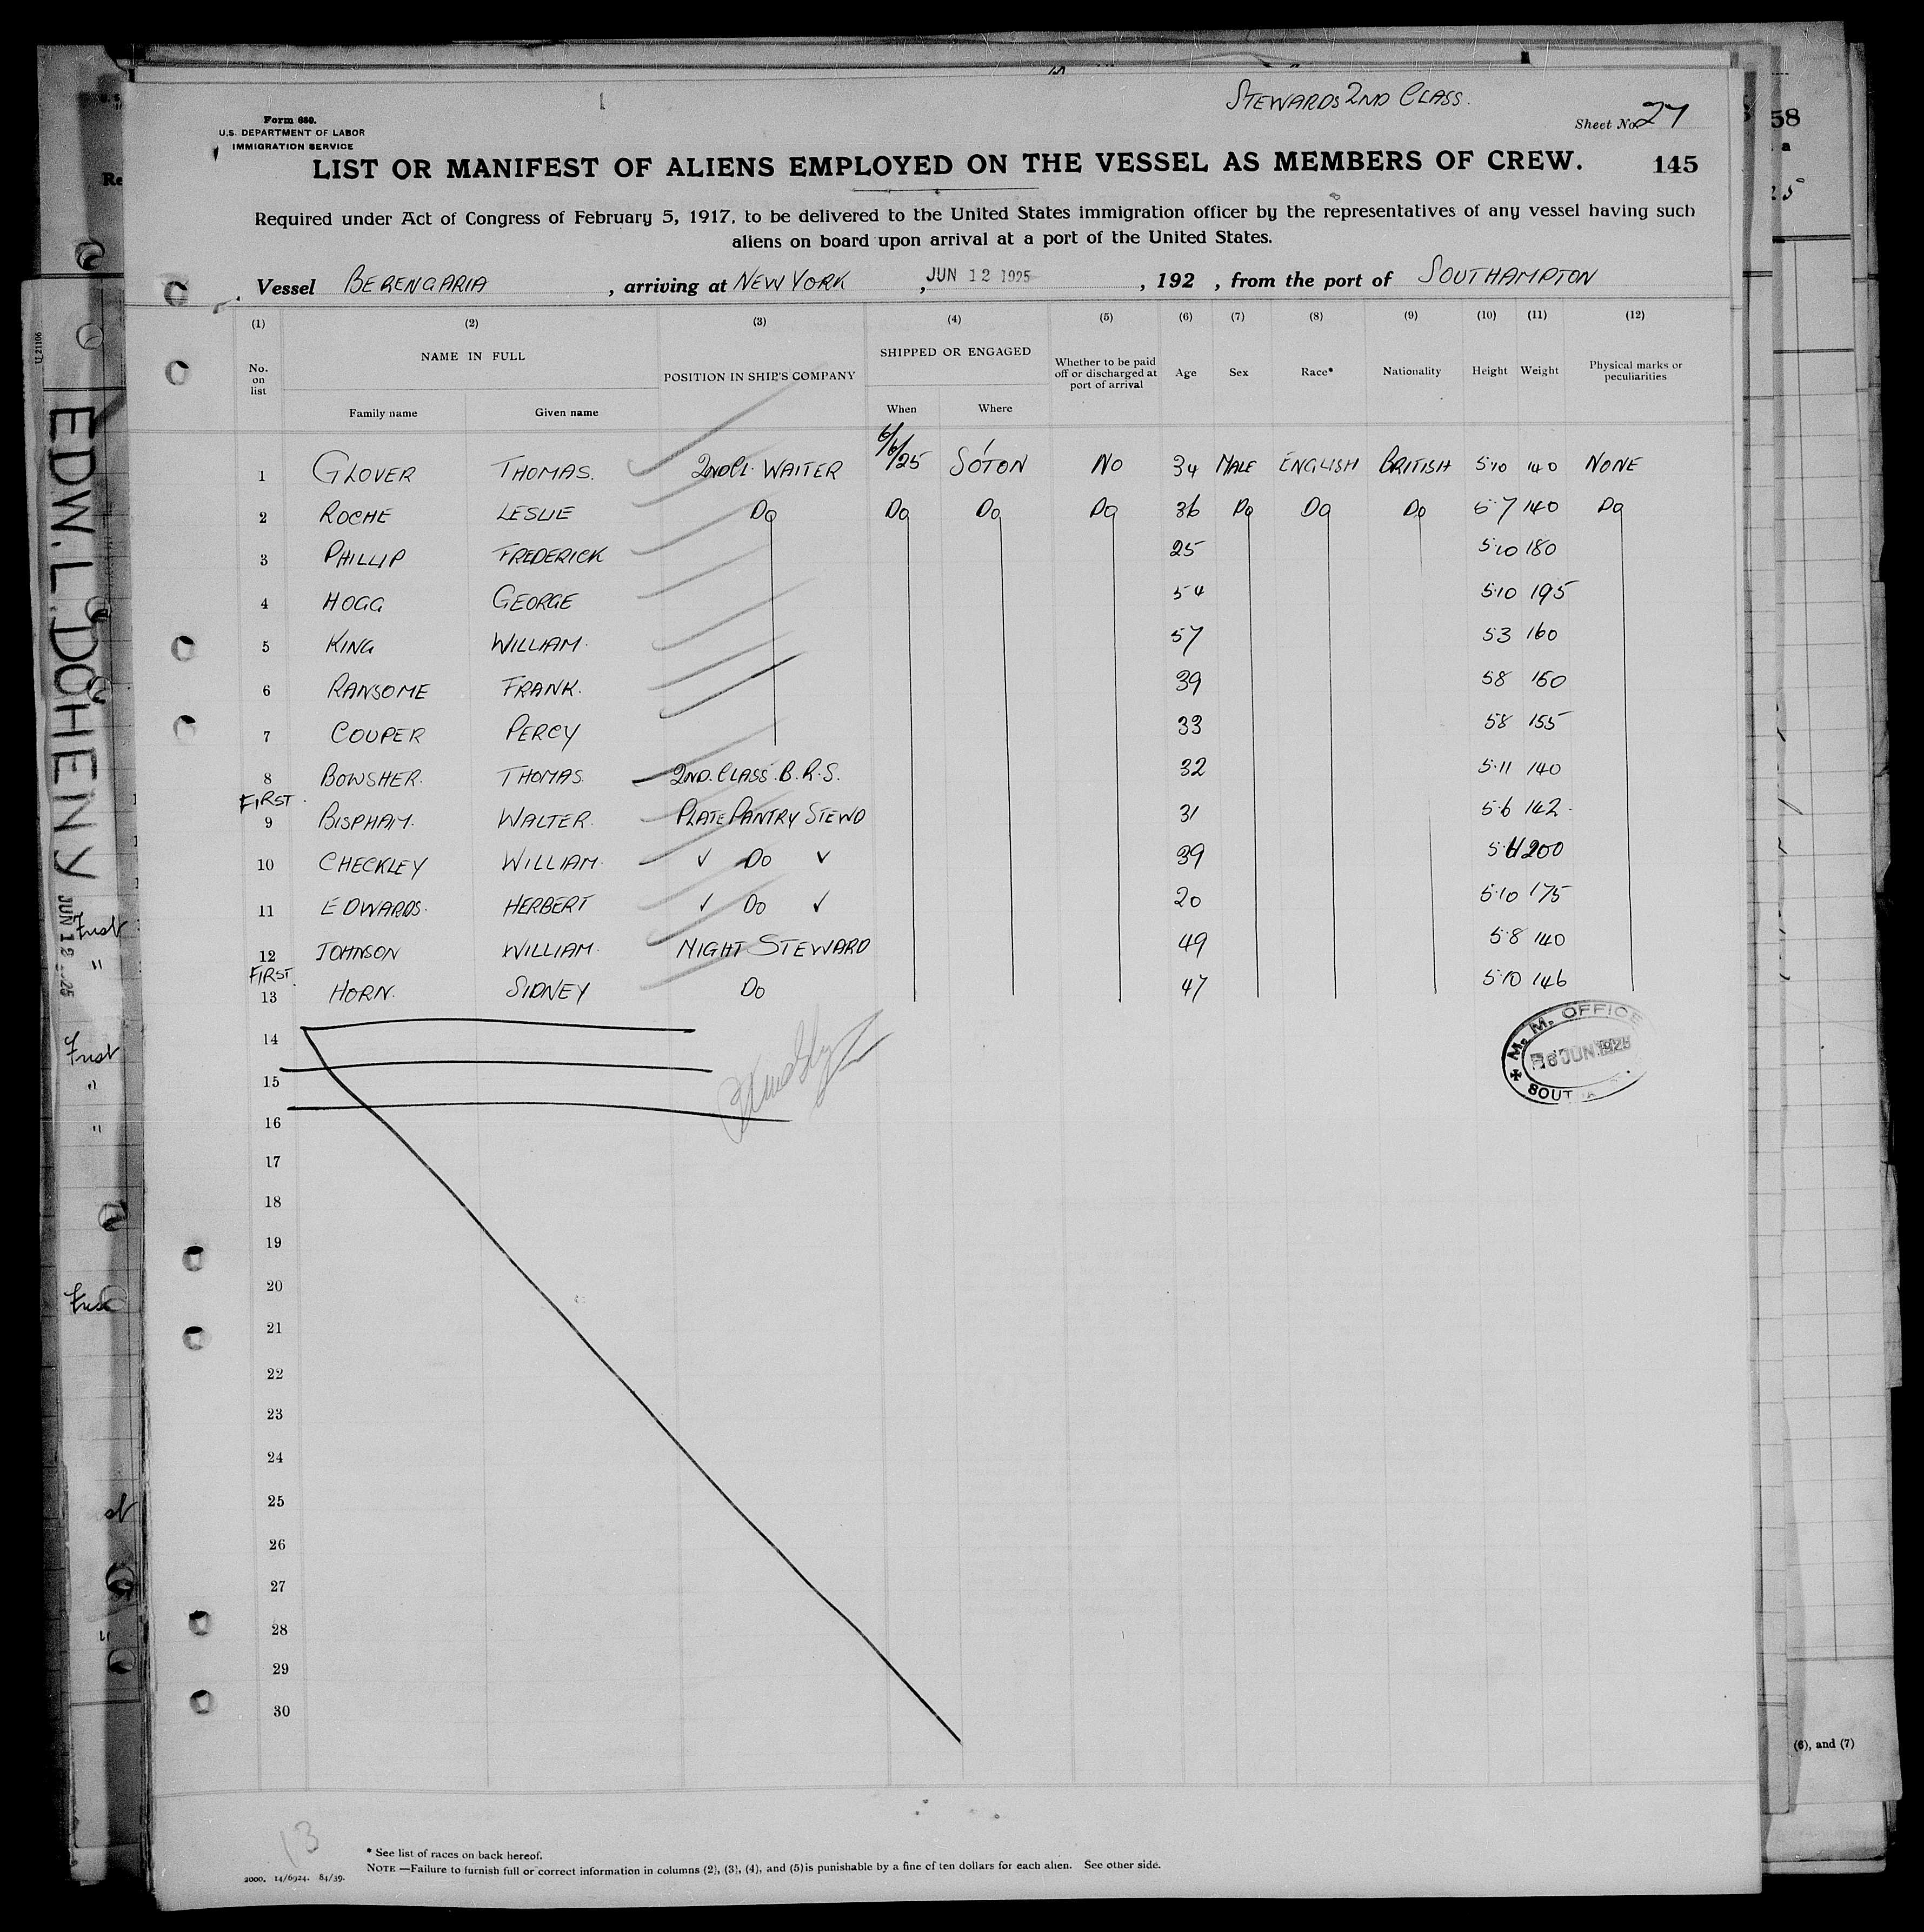 STEWARDS 2ND CLASS.
Form 680.
U.S. DEPARTMENT OF LABOR
IMMIGRATION SERVICE
Sheet No. 27
LIST OR MANIFEST OF ALIENS EMPLOYED ON THE VESSEL AS MEMBERS OF CREW. 145
Required under Act of Congress of February 5, 1917, to be delivered to the United States immigration officer by the representatives of any vessel having such
aliens on board upon arrival at a port of the United States.
Vessel BERENGARIA, arriving at NEW YORK, JUN 12 1925, 192 , from the port of SOUTHAMPTON
(1) (2) (3) (4) (5) (6) (7) (8) (9) (10) (11) (12)
No. on list NAME IN FULL POSITION IN SHIP'S COMPANY SHIPPED OR ENGAGED Whether to be paid off or discharged at port of arrival Age Sex Race* Nationality Height Weight Physical marks or peculiarities
Family name Given name When Where
1 GLOVER THOMAS. 2ND CL. WAITER 6/6/25 SO'TON NO 34 MALE ENGLISH BRITISH 5·10 140 NONE
2 ROCHE LESLIE Do Do Do Do 36 Do Do Do 5·7 140 Do
3 PHILLIP FREDERICK 25 5·10 180
4 HOGG GEORGE 54 5·10 195
5 KING WILLIAM. 57 53 160
6 RANSOME FRANK. 39 58 160
7 COUPER PERCY 33 58 155
8 BOWSHER. THOMAS. 2ND. CLASS. B.R.S. 32 5·11 140
FIRST.
9 BISPHAM. WALTER. PLATE PANTRY STEWD 31 5·6 142.
10 CHECKLEY WILLIAM. ✓ Do ✓ 39 200
11 EDWARDS. HERBERT ✓ Do ✓ 20 5·10 175
12 JOHNSON WILLIAM. NIGHT STEWARD 49 5·8 140
FIRST.
13 HORN. SIDNEY Do 47 5·10 146
14
15
16
17
18
19
20
21
22
23
24
25
26
27
28
29
30
M. M. OFFICE
6 JUN. 1925
SOUT
13
* See list of races on back hereof.
NOTE —Failure to furnish full or correct information in columns (2), (3), (4), and (5) is punishable by a fine of ten dollars for each alien. See other side.
2000. 14/6924. 84/39.
EDW. L. DOHENY
JUN 12 1925
U 21106
58
(6), and (7)